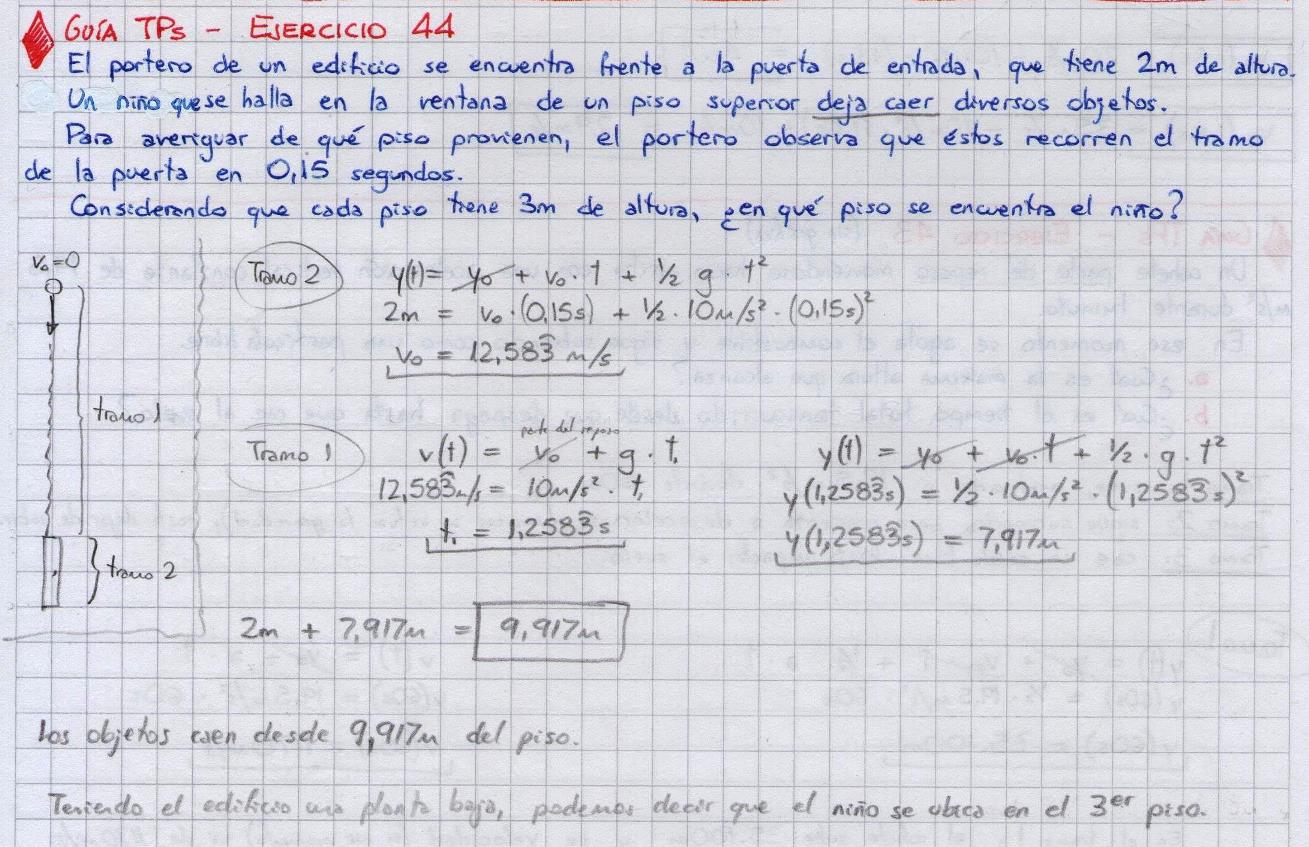 GUÍA TPs - EJERCICIO 44
El portero de un edificio se encuentra frente a la puerta de entrada, que tiene 2m de altura.
Un niño que se halla en la ventana de un piso superior deja caer diversos objetos.
Para averiguar de qué piso provienen, el portero observa que éstos recorren el tramo
de la puerta en 0,15 segundos.
Considerando que cada piso tiene 3m de altura, ¿en qué piso se encuentra el niño?
v₀=0
tramo 1
tramo 2
Tramo 2
y(t) = y₀ + v₀ · t + ½ g t²
2m = v₀ · (0,15s) + ½ · 10m/s² · (0,15s)²
v₀ = 12,583̂ m/s
Tramo 1
parte del reposo
v(t) = v₀ + g · t₁
12,583̂ m/s = 10m/s² · t₁
t₁ = 1,2583̂ s
y(t) = y₀ + v₀·t + ½ · g · t²
y(1,2583̂s) = ½ · 10m/s² · (1,2583̂s)²
y(1,2583̂s) = 7,917m
2m + 7,917m = 9,917m
Los objetos caen desde 9,917m del piso.
Teniendo el edificio una planta baja, podemos decir que el niño se ubica en el 3er piso.